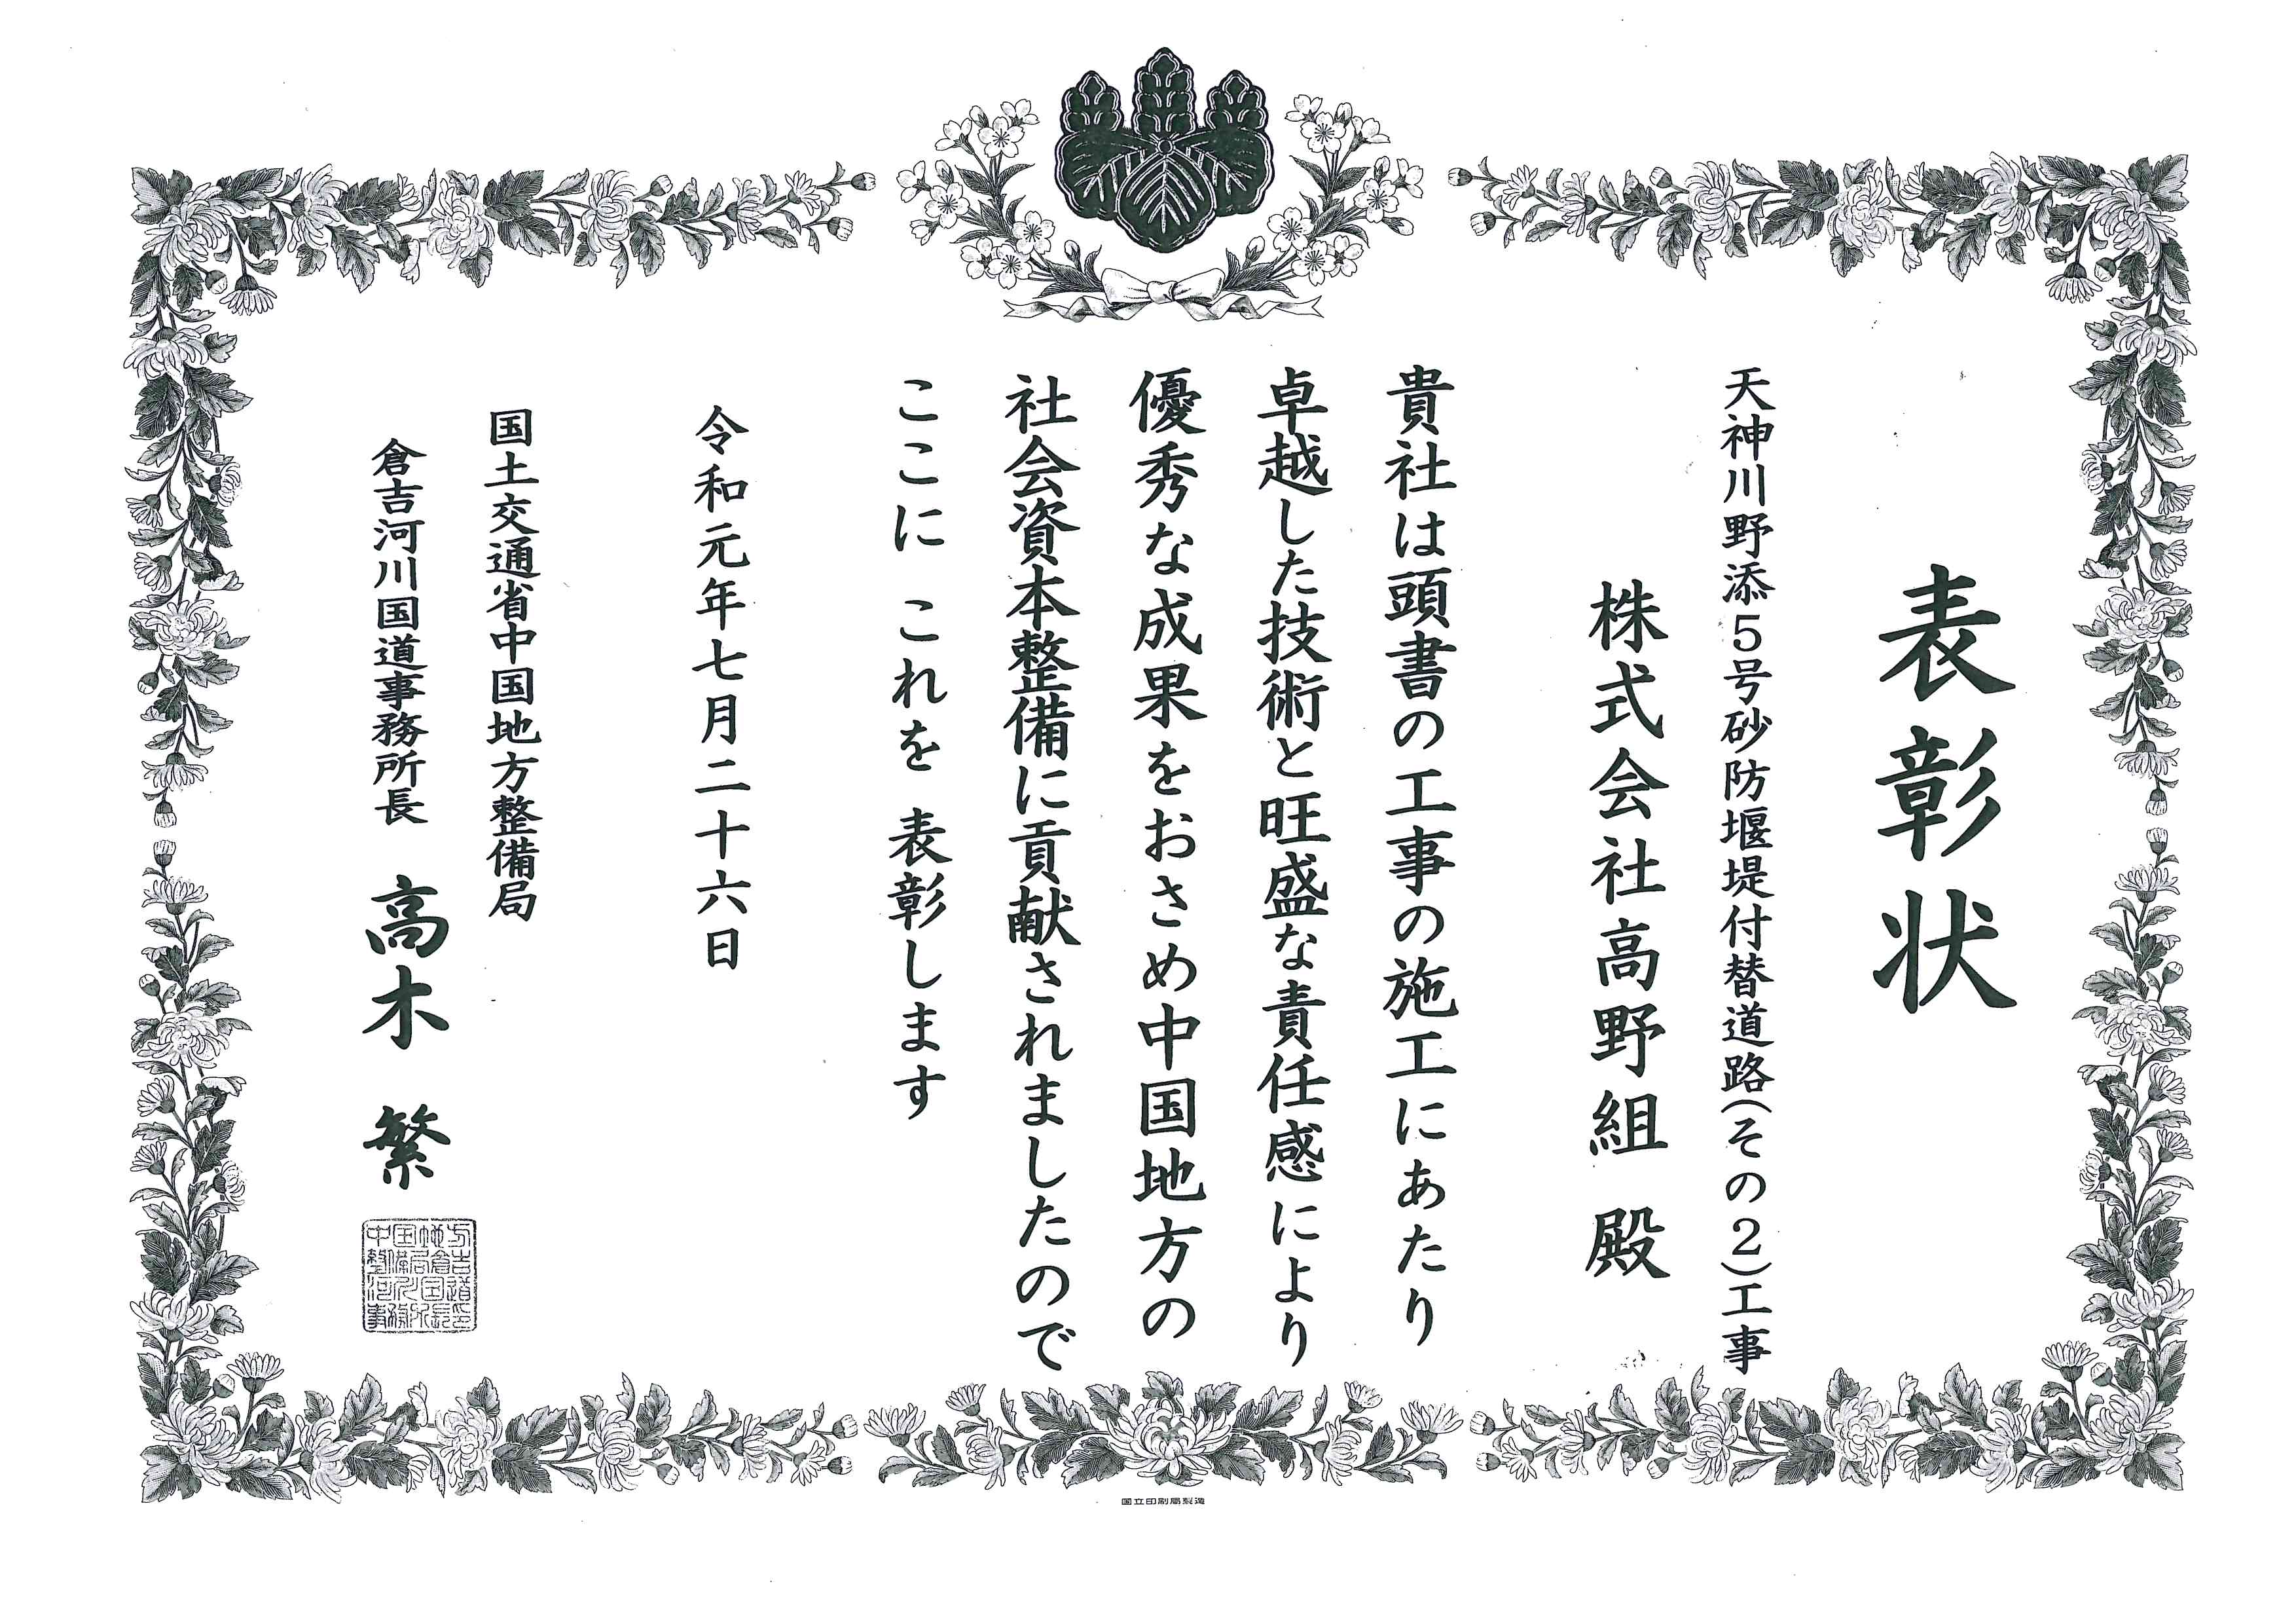 表彰状
天神川野添５号砂防堰堤付替道路(その２)工事
株式会社高野組 殿
貴社は頭書の工事の施工にあたり
卓越した技術と旺盛な責任感により
優秀な成果をおさめ中国地方の
社会資本整備に貢献されましたので
ここに これを 表彰します
令和元年七月二十六日
国土交通省中国地方整備局
倉吉河川国道事務所長 高木 繁
国立印刷局製造